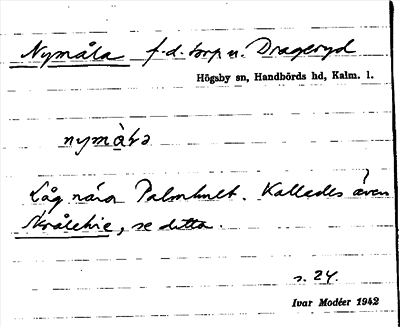 Nymåla f.d. torp u. Drageryd
Högsby sn, Handbörds hd, Kalm. l.
nymå̀la
Låg nära Palmhult. Kallades även
Skrålehie, se ditta.
s. 24.
Ivar Modéer 1942